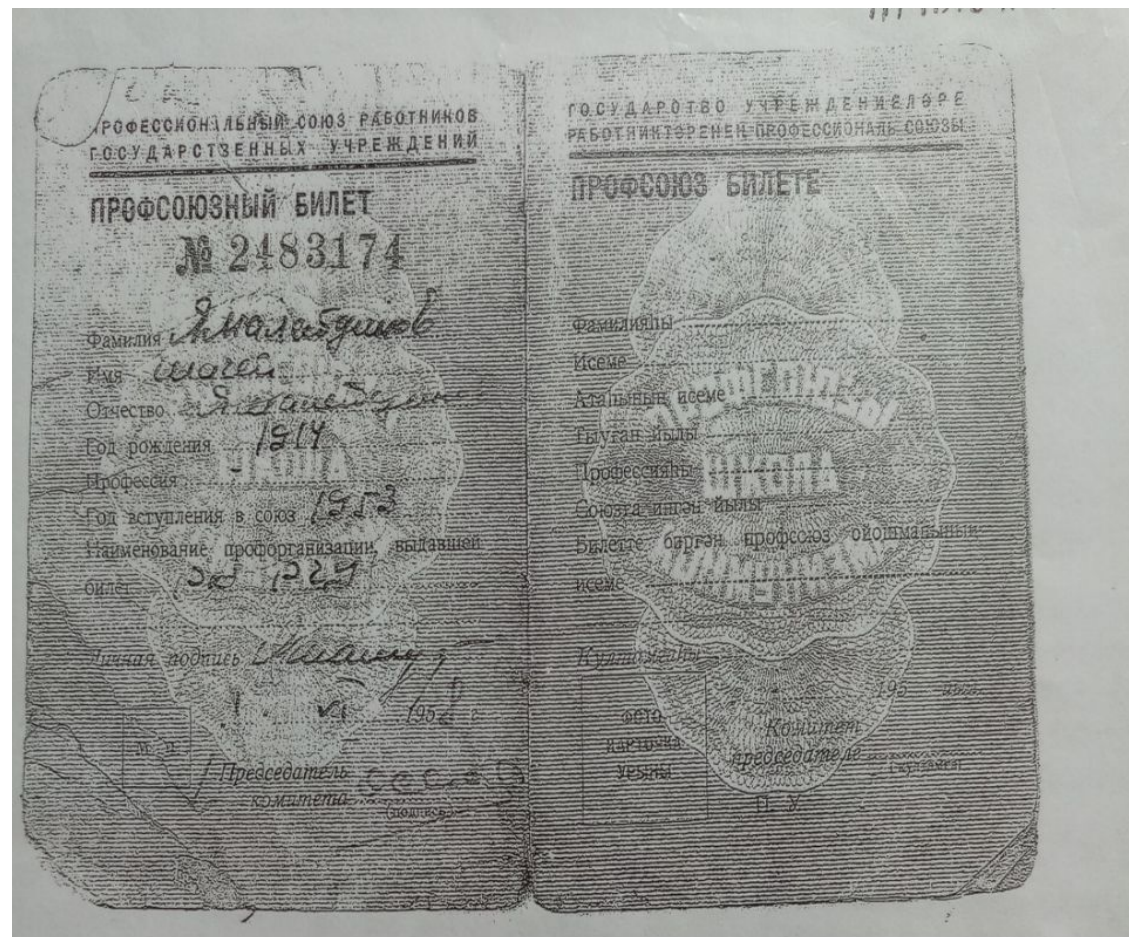 ПРОФЕССИОНАЛЬНЫЙ СОЮЗ РАБОТНИКОВ
ГОСУДАРСТВЕННЫХ УЧРЕЖДЕНИЙ
ПРОФСОЮЗНЫЙ БИЛЕТ
№ 2483174
Фамилия Ямалетдинов
Имя
Отчество
Год рождения 1914
Профессия
Год вступления в союз 1953
Наименование профорганизации, выдавшей
билет
Личная подпись
195 г.
М. П.
Председатель
комитета
(подпись)
ГОСУДАРСТВО УЧРЕЖДЕНИЕЛӘРЕ
РАБОТНИКТӘРЕНЕҢ ПРОФЕССИОНАЛЬ СОЮЗЫ
ПРОФСОЮЗ БИЛЕТЕ
Фамилияһы
Исеме
Атаһының исеме
Тыуған йылы
Профессияһы
Союзға ингән йылы
Билетте биргән профсоюз ойошмаһының
исеме
Ҡултамғаһы
195 йыл
ФОТО-
КАРТОЧКА
УРЫНЫ
Комитет
председателе
(ҡултамға)
П. У.
ПРОФСОЮЗЫ
ШКОЛА
КОММУНИЗМА